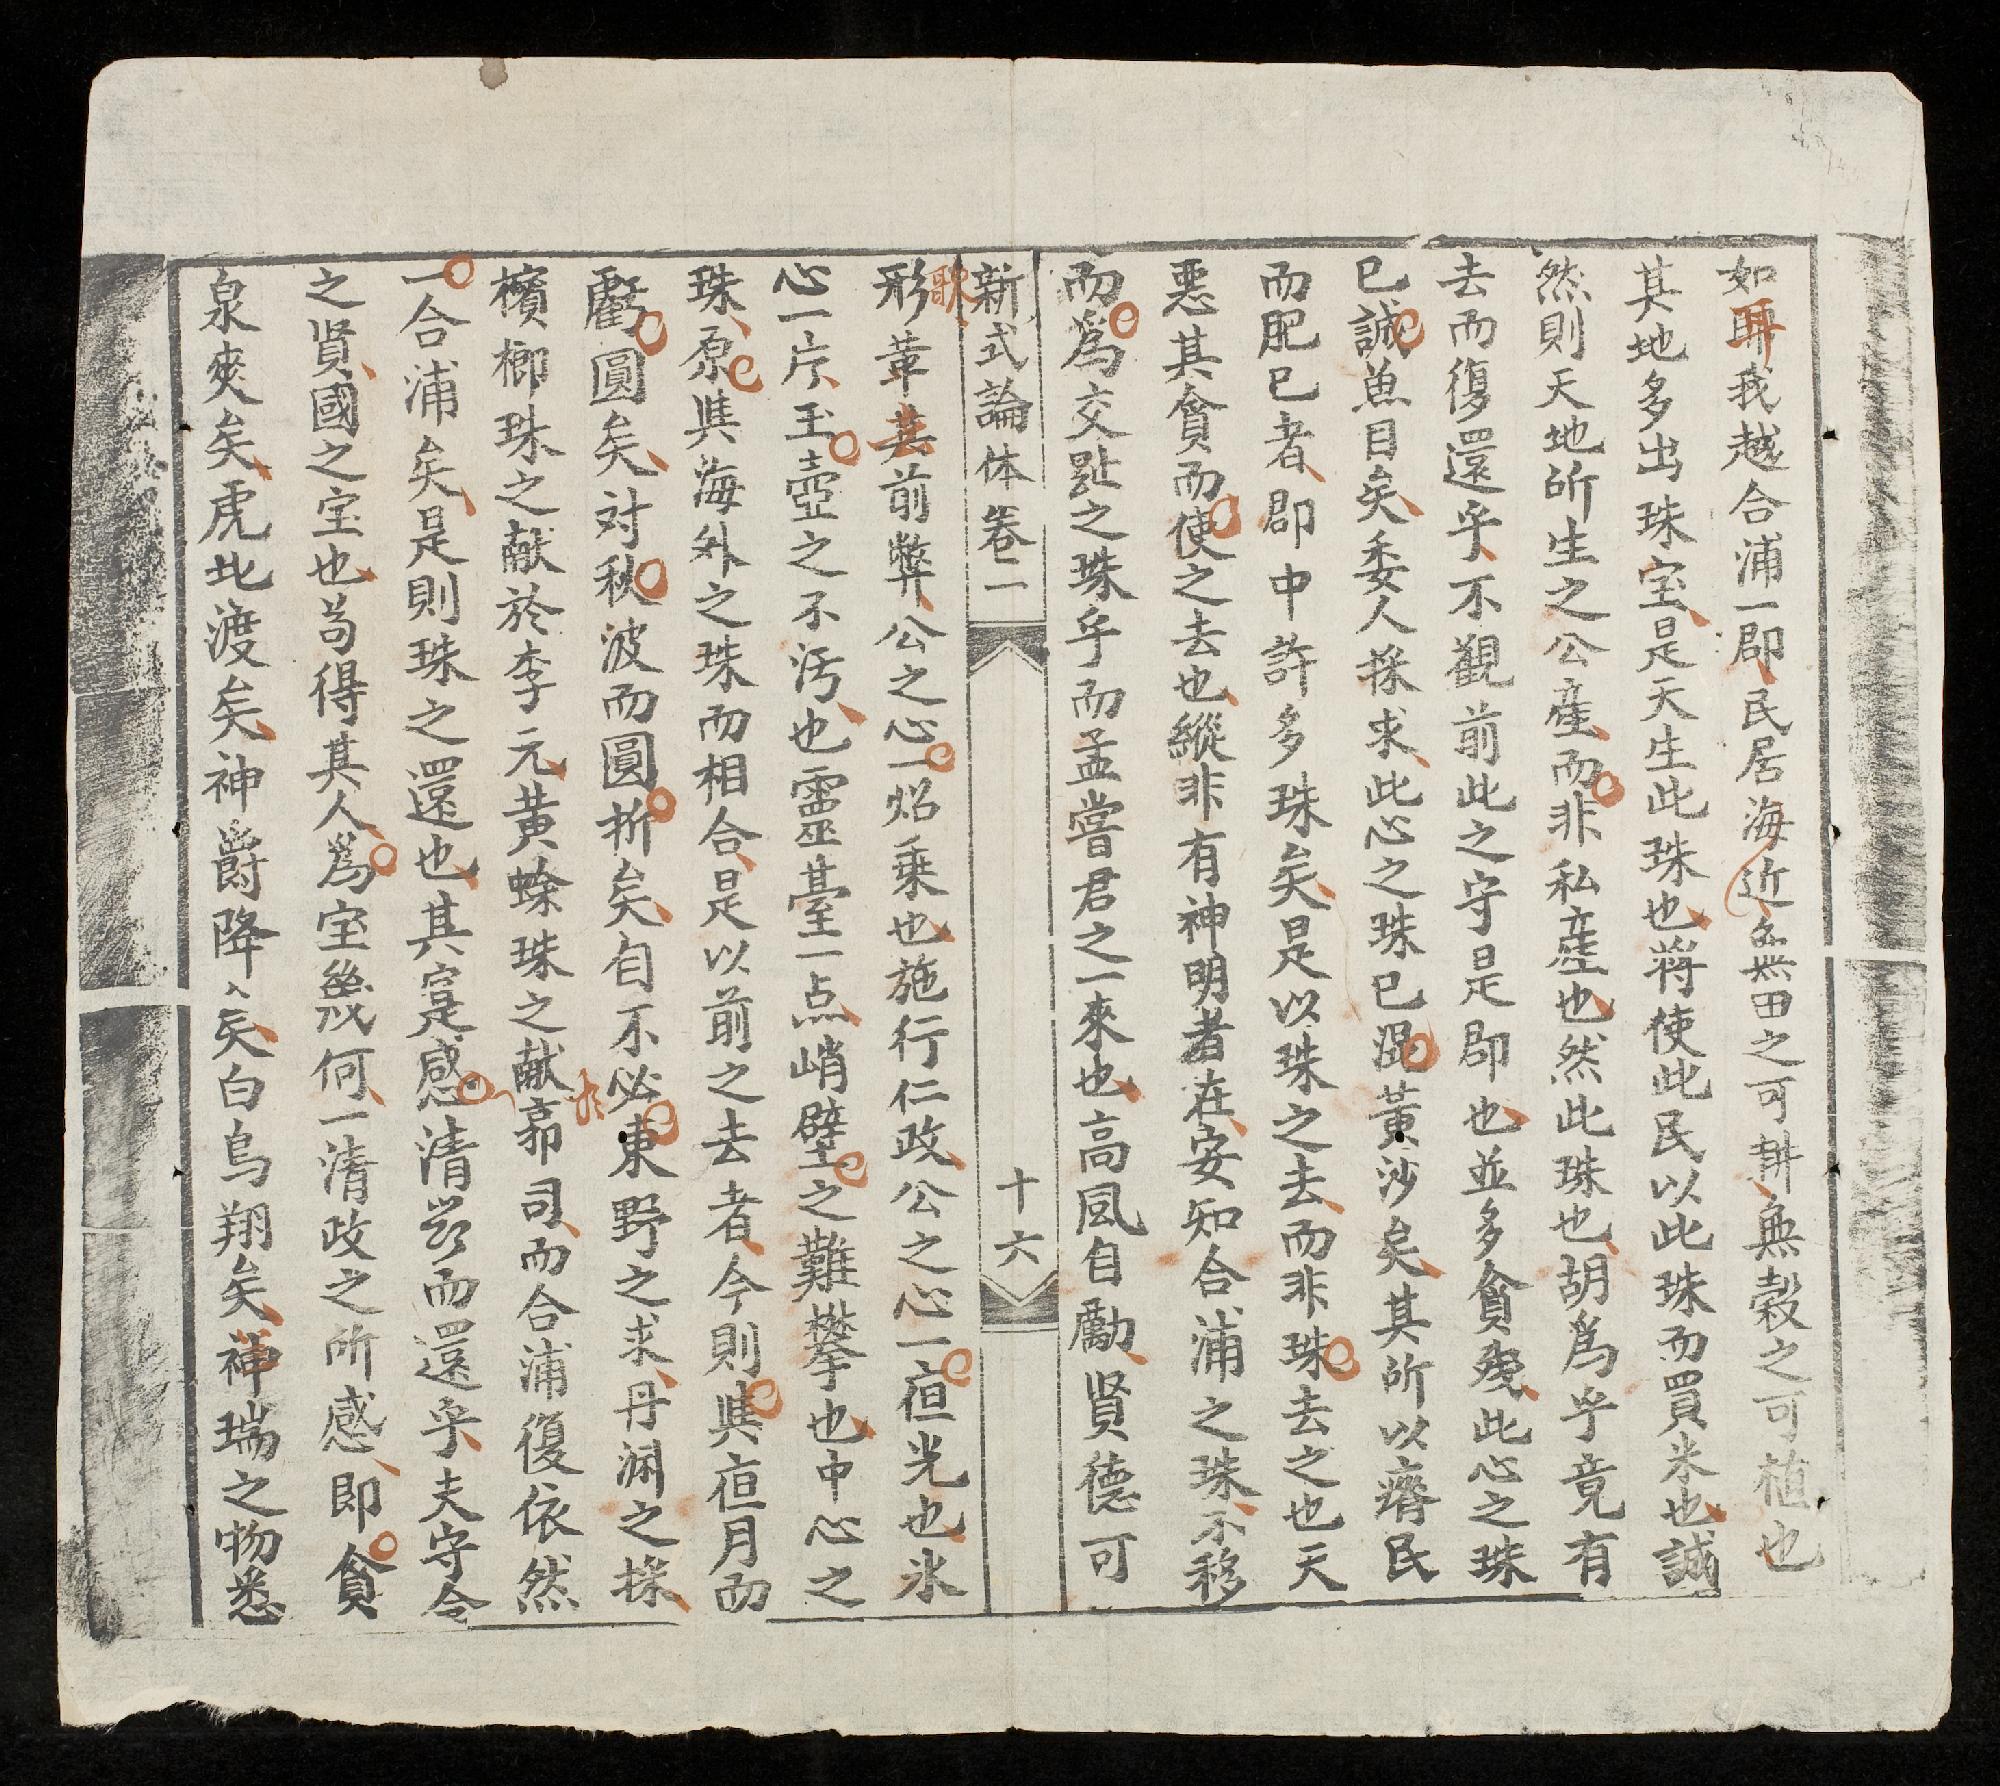 如耼我越合浦一郡民居海近無田之可耕無穀之可植也
其地多出珠宝是天生此珠也將使此民以此珠而買米也誠
然則天地所生之公產而非私產也然此珠也胡爲乎竟有
去而復還乎不觀前此之守是郡也並多貪殘此心之珠
已誠魚目矣委人採求此心之珠已混黃沙矣其所以瘠民
而肥已者郡中許多珠矣是以珠之去而非珠去之也天
悪其貪而使之去也縱非有神明者在安知合浦之珠不移
而爲交趾之珠乎而孟嘗君之一來也高風自勵賢德可
新式論体卷二
十六
歌
形革其前弊公之心一炤乗也施行仁政公之心一夜光也氷
心一片玉壺之不汚也靈臺一点峭壁之難攀也中心之
珠原與海外之珠而相合是以前之去者今則與夜月而
虧圓矣对秋波而圓折矣自不必東野之求丹渊之採
檳榔珠之献於李元黄蜍珠之献郭司而合浦復依然
一合浦矣是則珠之還也其寔感清而還乎夫守令
之賢國之宝也苟得其人爲宝幾何一清政之所感即貪
泉爽矣虎北渡矣神爵降矣白鳥翔矣神瑞之物悉